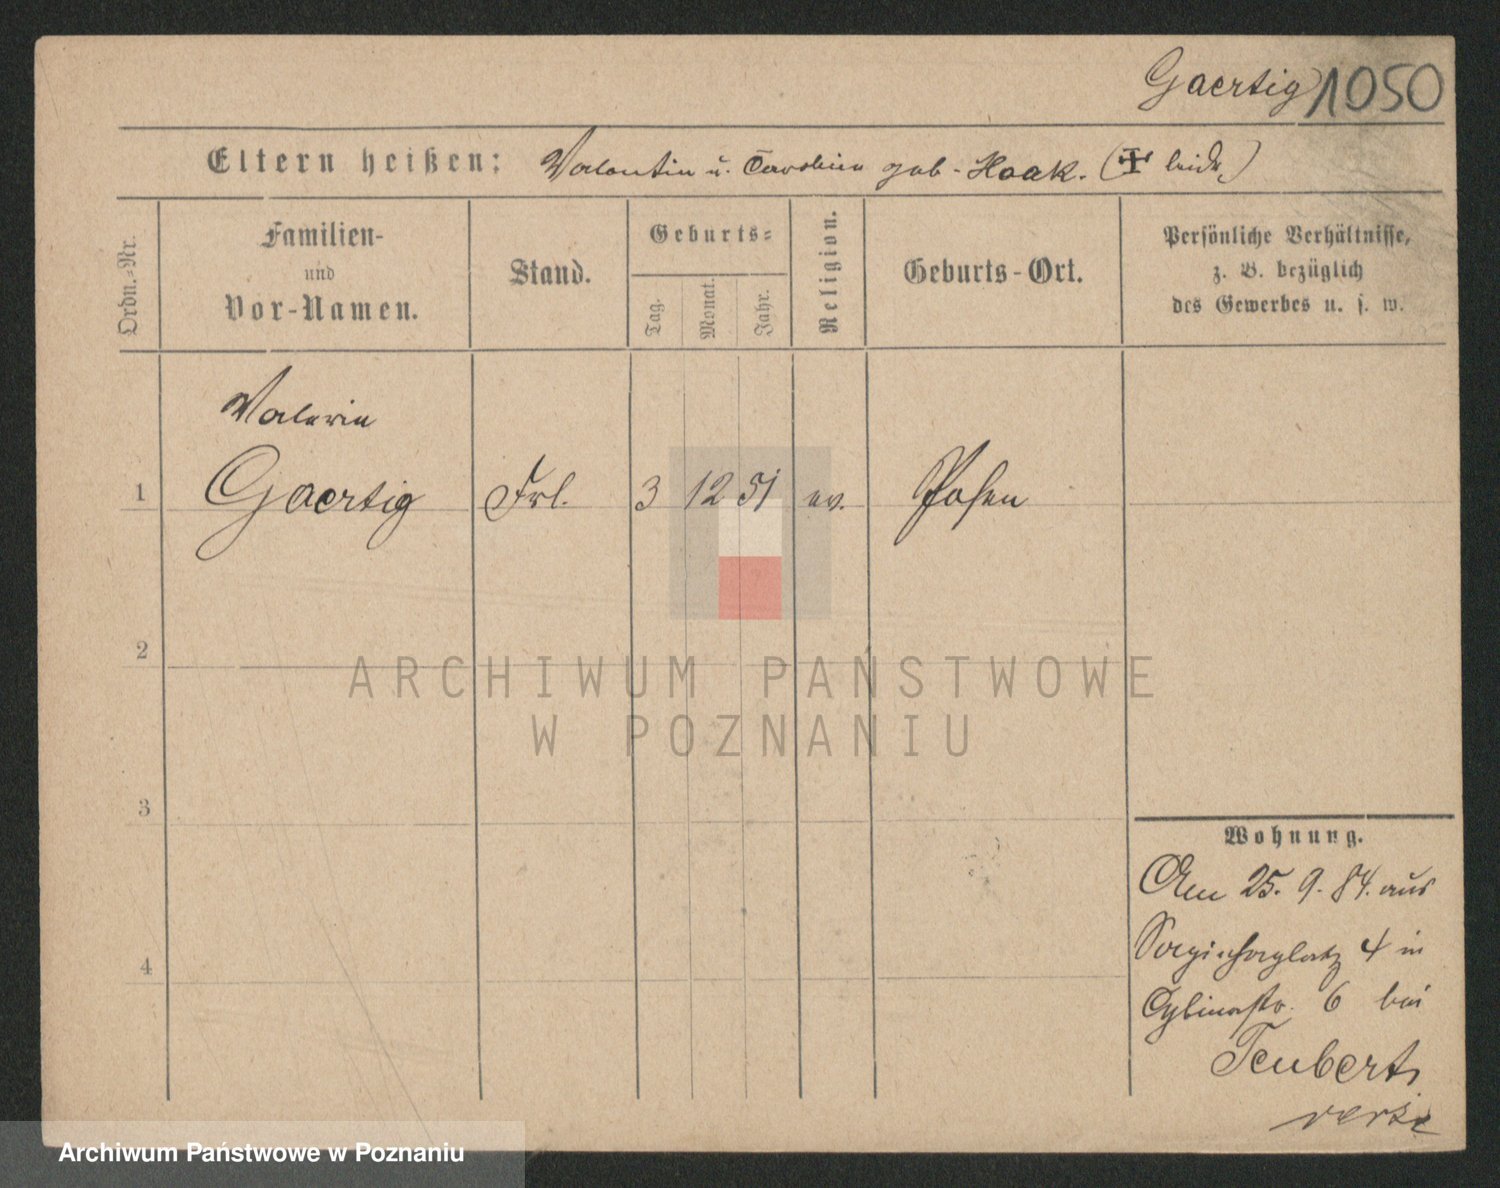 Gaertig 1050
Eltern heißen: Valentin u. Caroline geb. Haak. († beide)
Ordn.-Nr.
Familien-
und
Vor-Namen.
Stand.
Geburts-
Tag.
Monat.
Jahr.
Religion.
Geburts-Ort.
Persönliche Verhältnisse,
z. B. bezüglich
des Gewerbes u. s. w.
Valerie
1 Gaertig Frl. 3 12 51 ev. Posen
2
ARCHIWUM PAŃSTWOWE
W POZNANIU
3
4
Wohnung.
Am 25. 9. 84. aus
Sapiehaplatz 4 in
Cybinastr. 6 bei
Teubert
verte
Archiwum Państwowe w Poznaniu